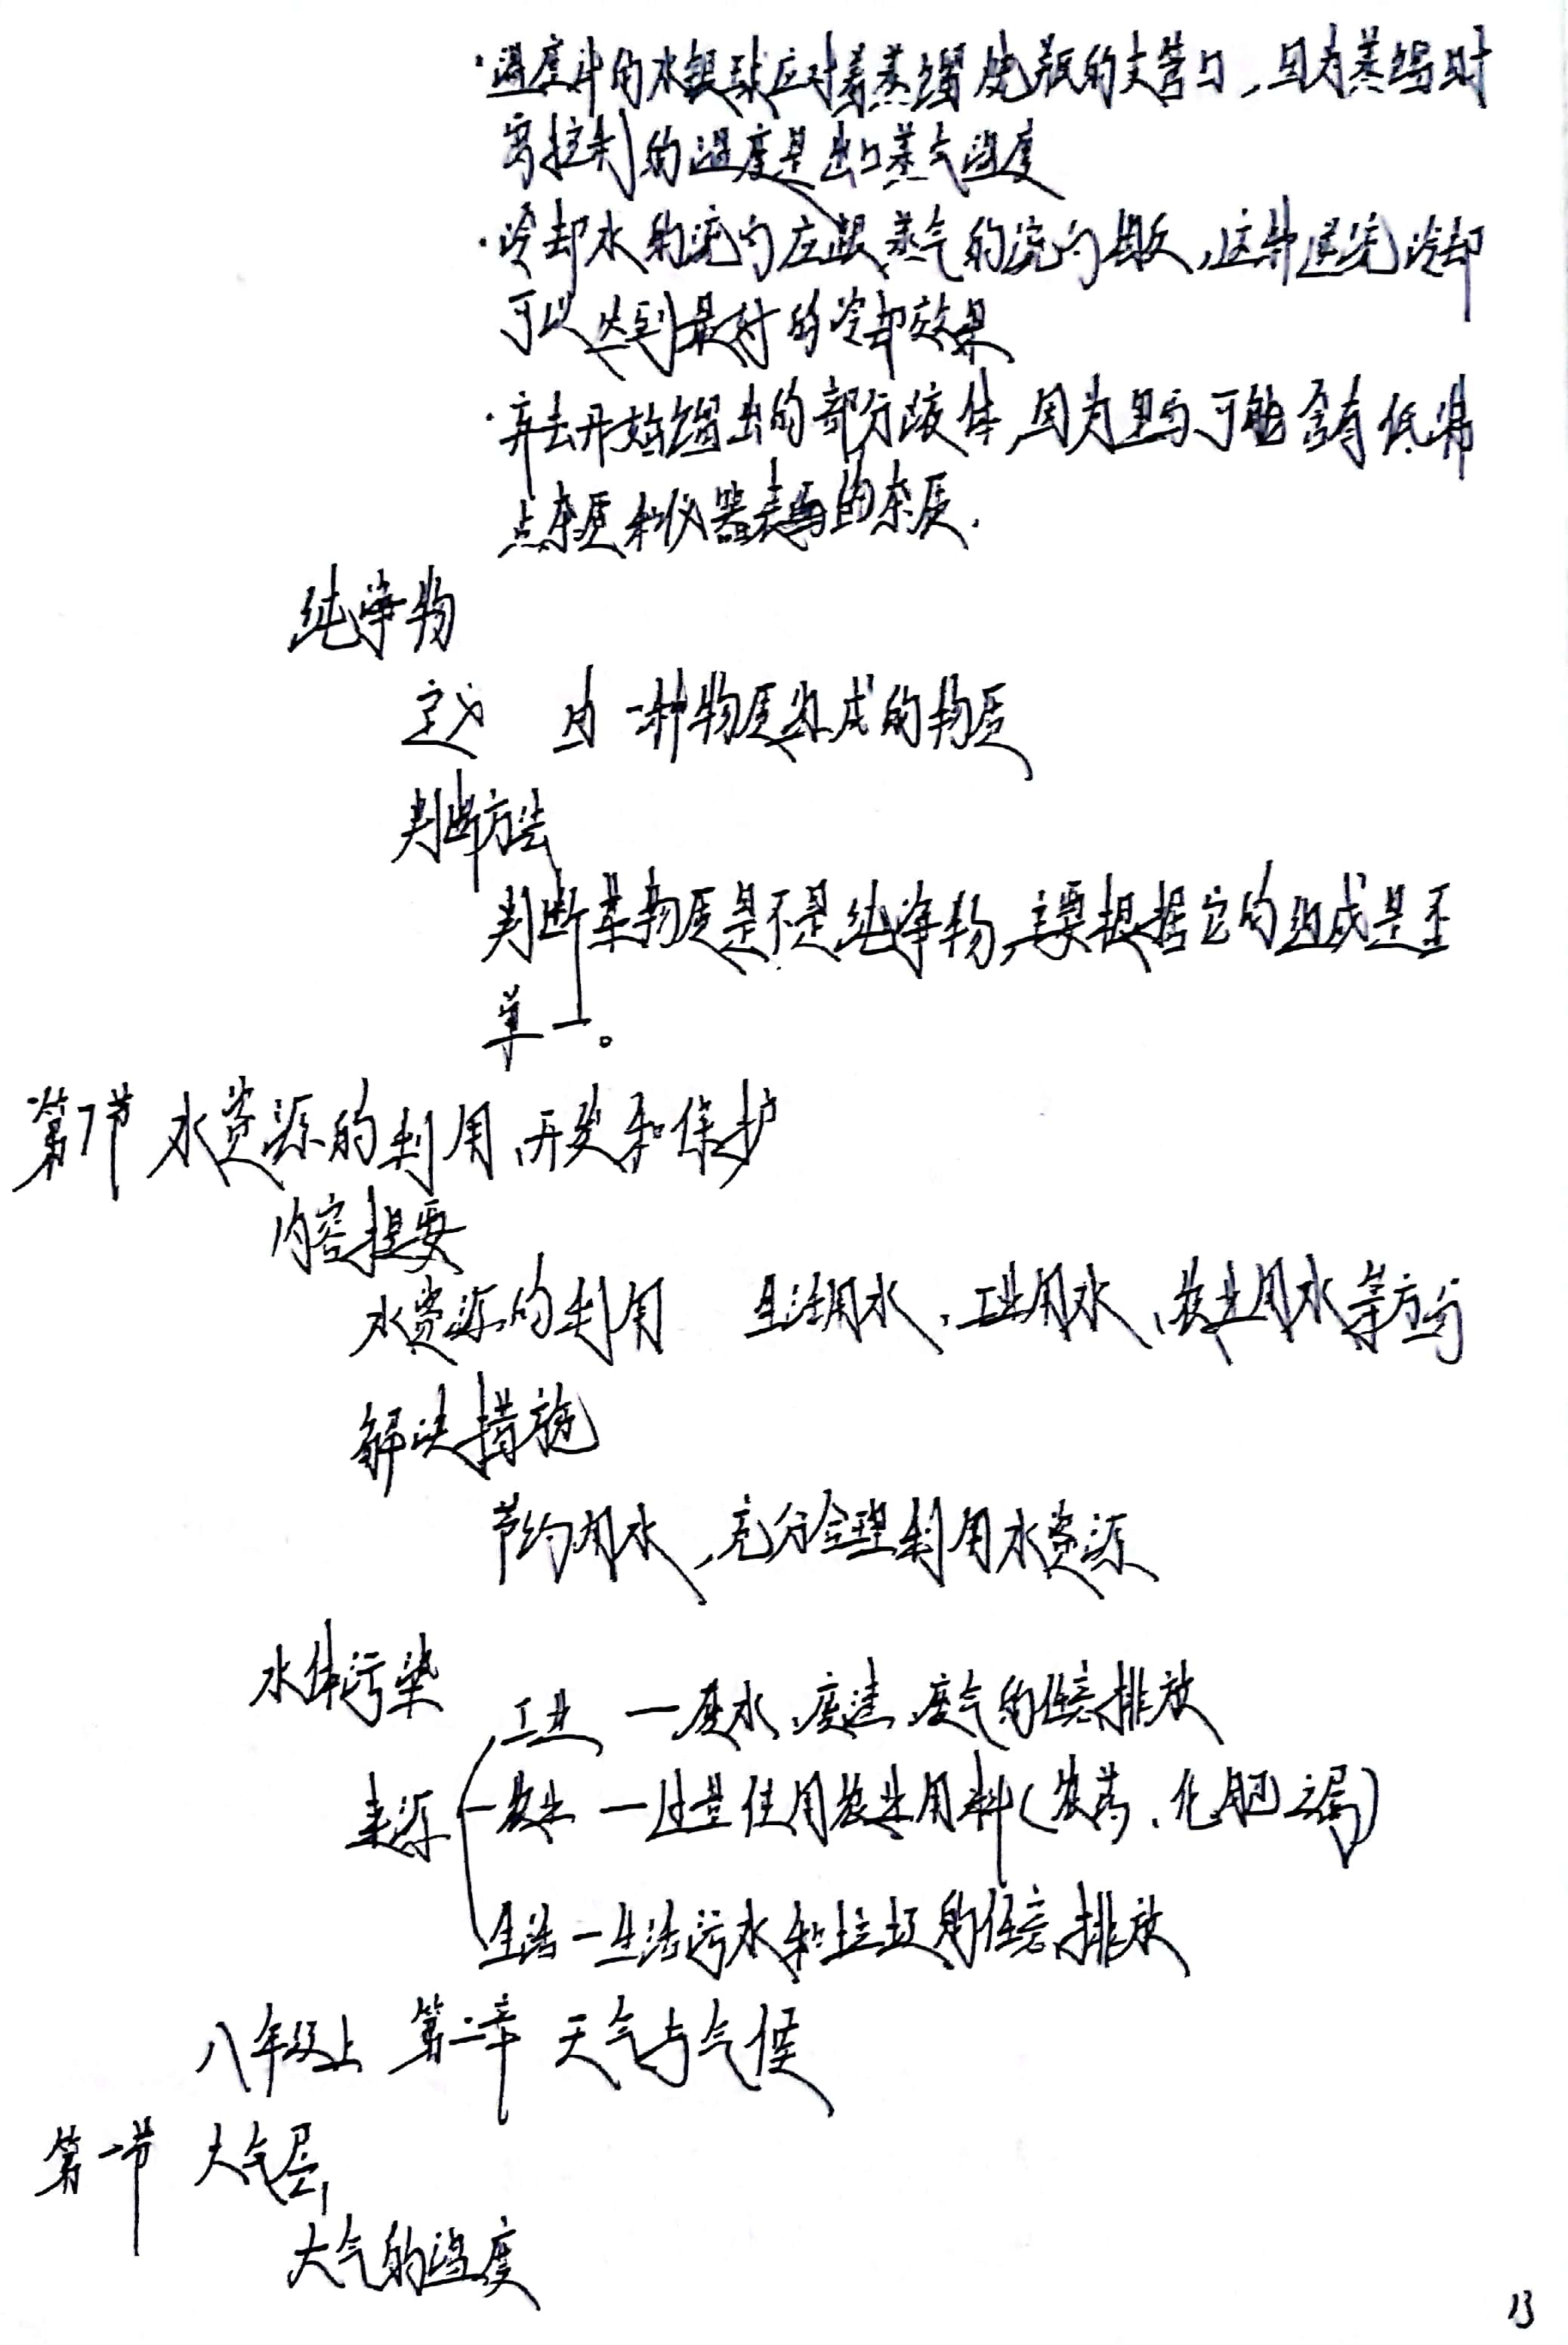 ·温度计的水银球应对着蒸馏烧瓶的支管口,因为蒸馏时
需控制的温度是出口蒸气温度
·冷却水的流向应跟蒸气的流向相反,这种逆流冷却
可以达到最好的冷却效果
·弃去开始馏出的部分液体,因为里面可能含有低沸
点杂质和仪器表面的杂质.
纯净物
定义 由一种物质组成的物质
判断方法
判断某物质是不是纯净物,主要根据它的组成是否
单一。
第7节 水资源的利用、开发和保护
内容提要
水资源的利用 生活用水、工业用水、农业用水等方面
解决措施
节约用水,充分合理利用水资源
水体污染
工业 一废水、废渣、废气的任意排放
来源 一农业 一过量使用农业用料(农药、化肥之属)
生活一生活污水和垃圾的任意排放
八年级上 第二章 天气与气候
第一节 大气层
大气的温度
13